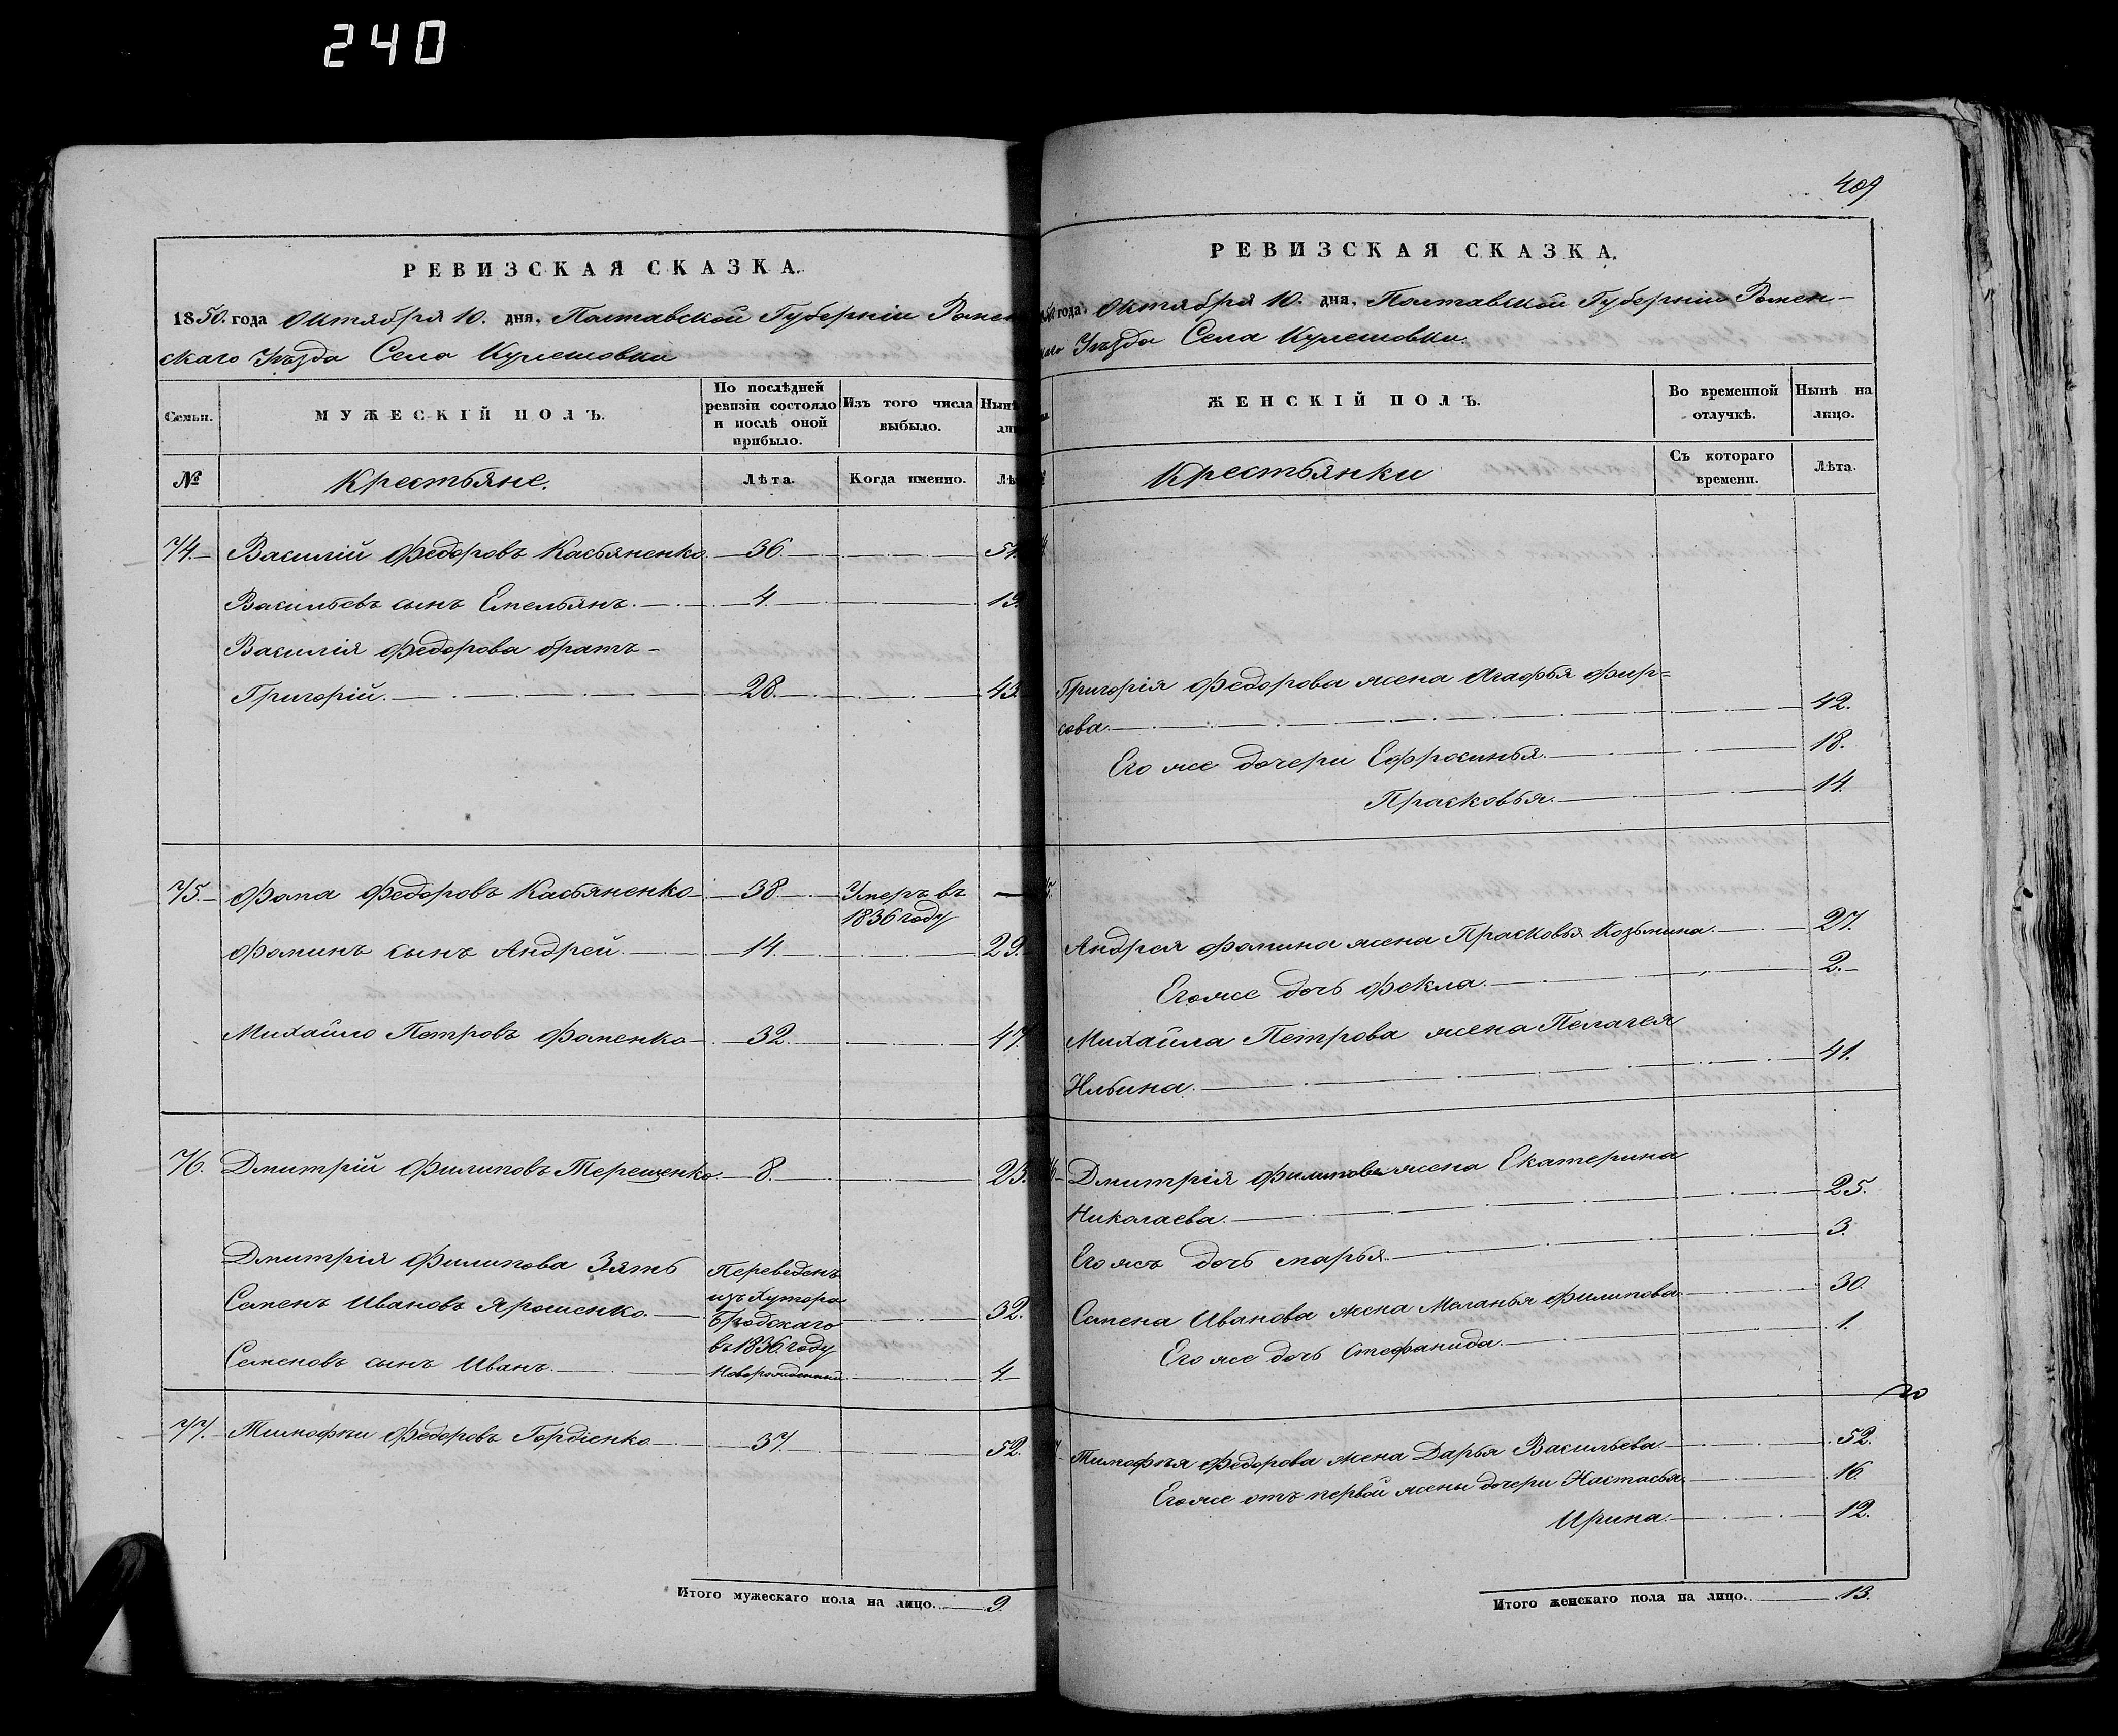 240
РЕВИЗСКАЯ СКАЗКА.
1850. года Октября 10. дня, Полтавской Губерніи Ромен
скаго Уѣзда Села Кулешовки
Семьи.
МУЖЕСКІЙ ПОЛЪ.
По послѣдней
ревизіи состояло
и послѣ оной
прибыло.
Изъ того числа
выбыло.
Нынѣ
ли
№
Крестьяне.
Лѣта.
Когда именно.
Лѣ
74. Василій Федоровъ Касьяненко 36. 51.
Васильевъ сынъ Емельянъ. 4. 19.
Василія Федорова братъ
Григорій. 28. 43.
75. Фома Федоровъ Касьяненко 38. Умеръ въ
1836 году
Фоминъ сынъ Андрей. 14. 29.
Михайло Петровъ Фоменко 32. 47.
76. Дмитрій Филиповъ Терещенко. 8. 23.
Дмитрія Филипова Зять Переведенъ
изъ Хутора
Семенъ Ивановъ Ярошенко. Бродскаго 32.
въ 1836 году
Семеновъ сынъ Иванъ. Новорожденный 4
77. Тимофѣй Федоровъ Гордіенко 37. 52.
Итого мужескаго пола на лицо. 9.
409
РЕВИЗСКАЯ СКАЗКА.
50 года. Октября 10. дня, Полтавской Губерніи Ромен-
каго Уѣзда Села Кулешовки.
ЖЕНСКІЙ ПОЛЪ.
Во временной
отлучкѣ.
Нынѣ на
лицо.
Крестьянки
Съ котораго
времени.
Лѣта.
Григорія Федорова жена Агафья Фир=
сова. 42.
Его же дочери Ефросинья. 18.
Прасковья. 14.
Андрея Фомина жена Прасковья Козьмина. 27.
Егоже дочь Фекла. 2.
Михайла Петрова жена Пелагея
Ильина. 41.
Дмитрія Филипова жена Екатерина
Николаева. 25.
Егожъ дочь Марья. 3.
Семена Иванова жена Меланья Филипова. 30.
Его же дочь Стефанида. 1.
Тимофѣя Федорова жена Дарья Васильева. 52.
Егоже отъ первой жены дочери Настасья. 16.
Ирина. 12.
Итого женскаго пола на лицо. 13.